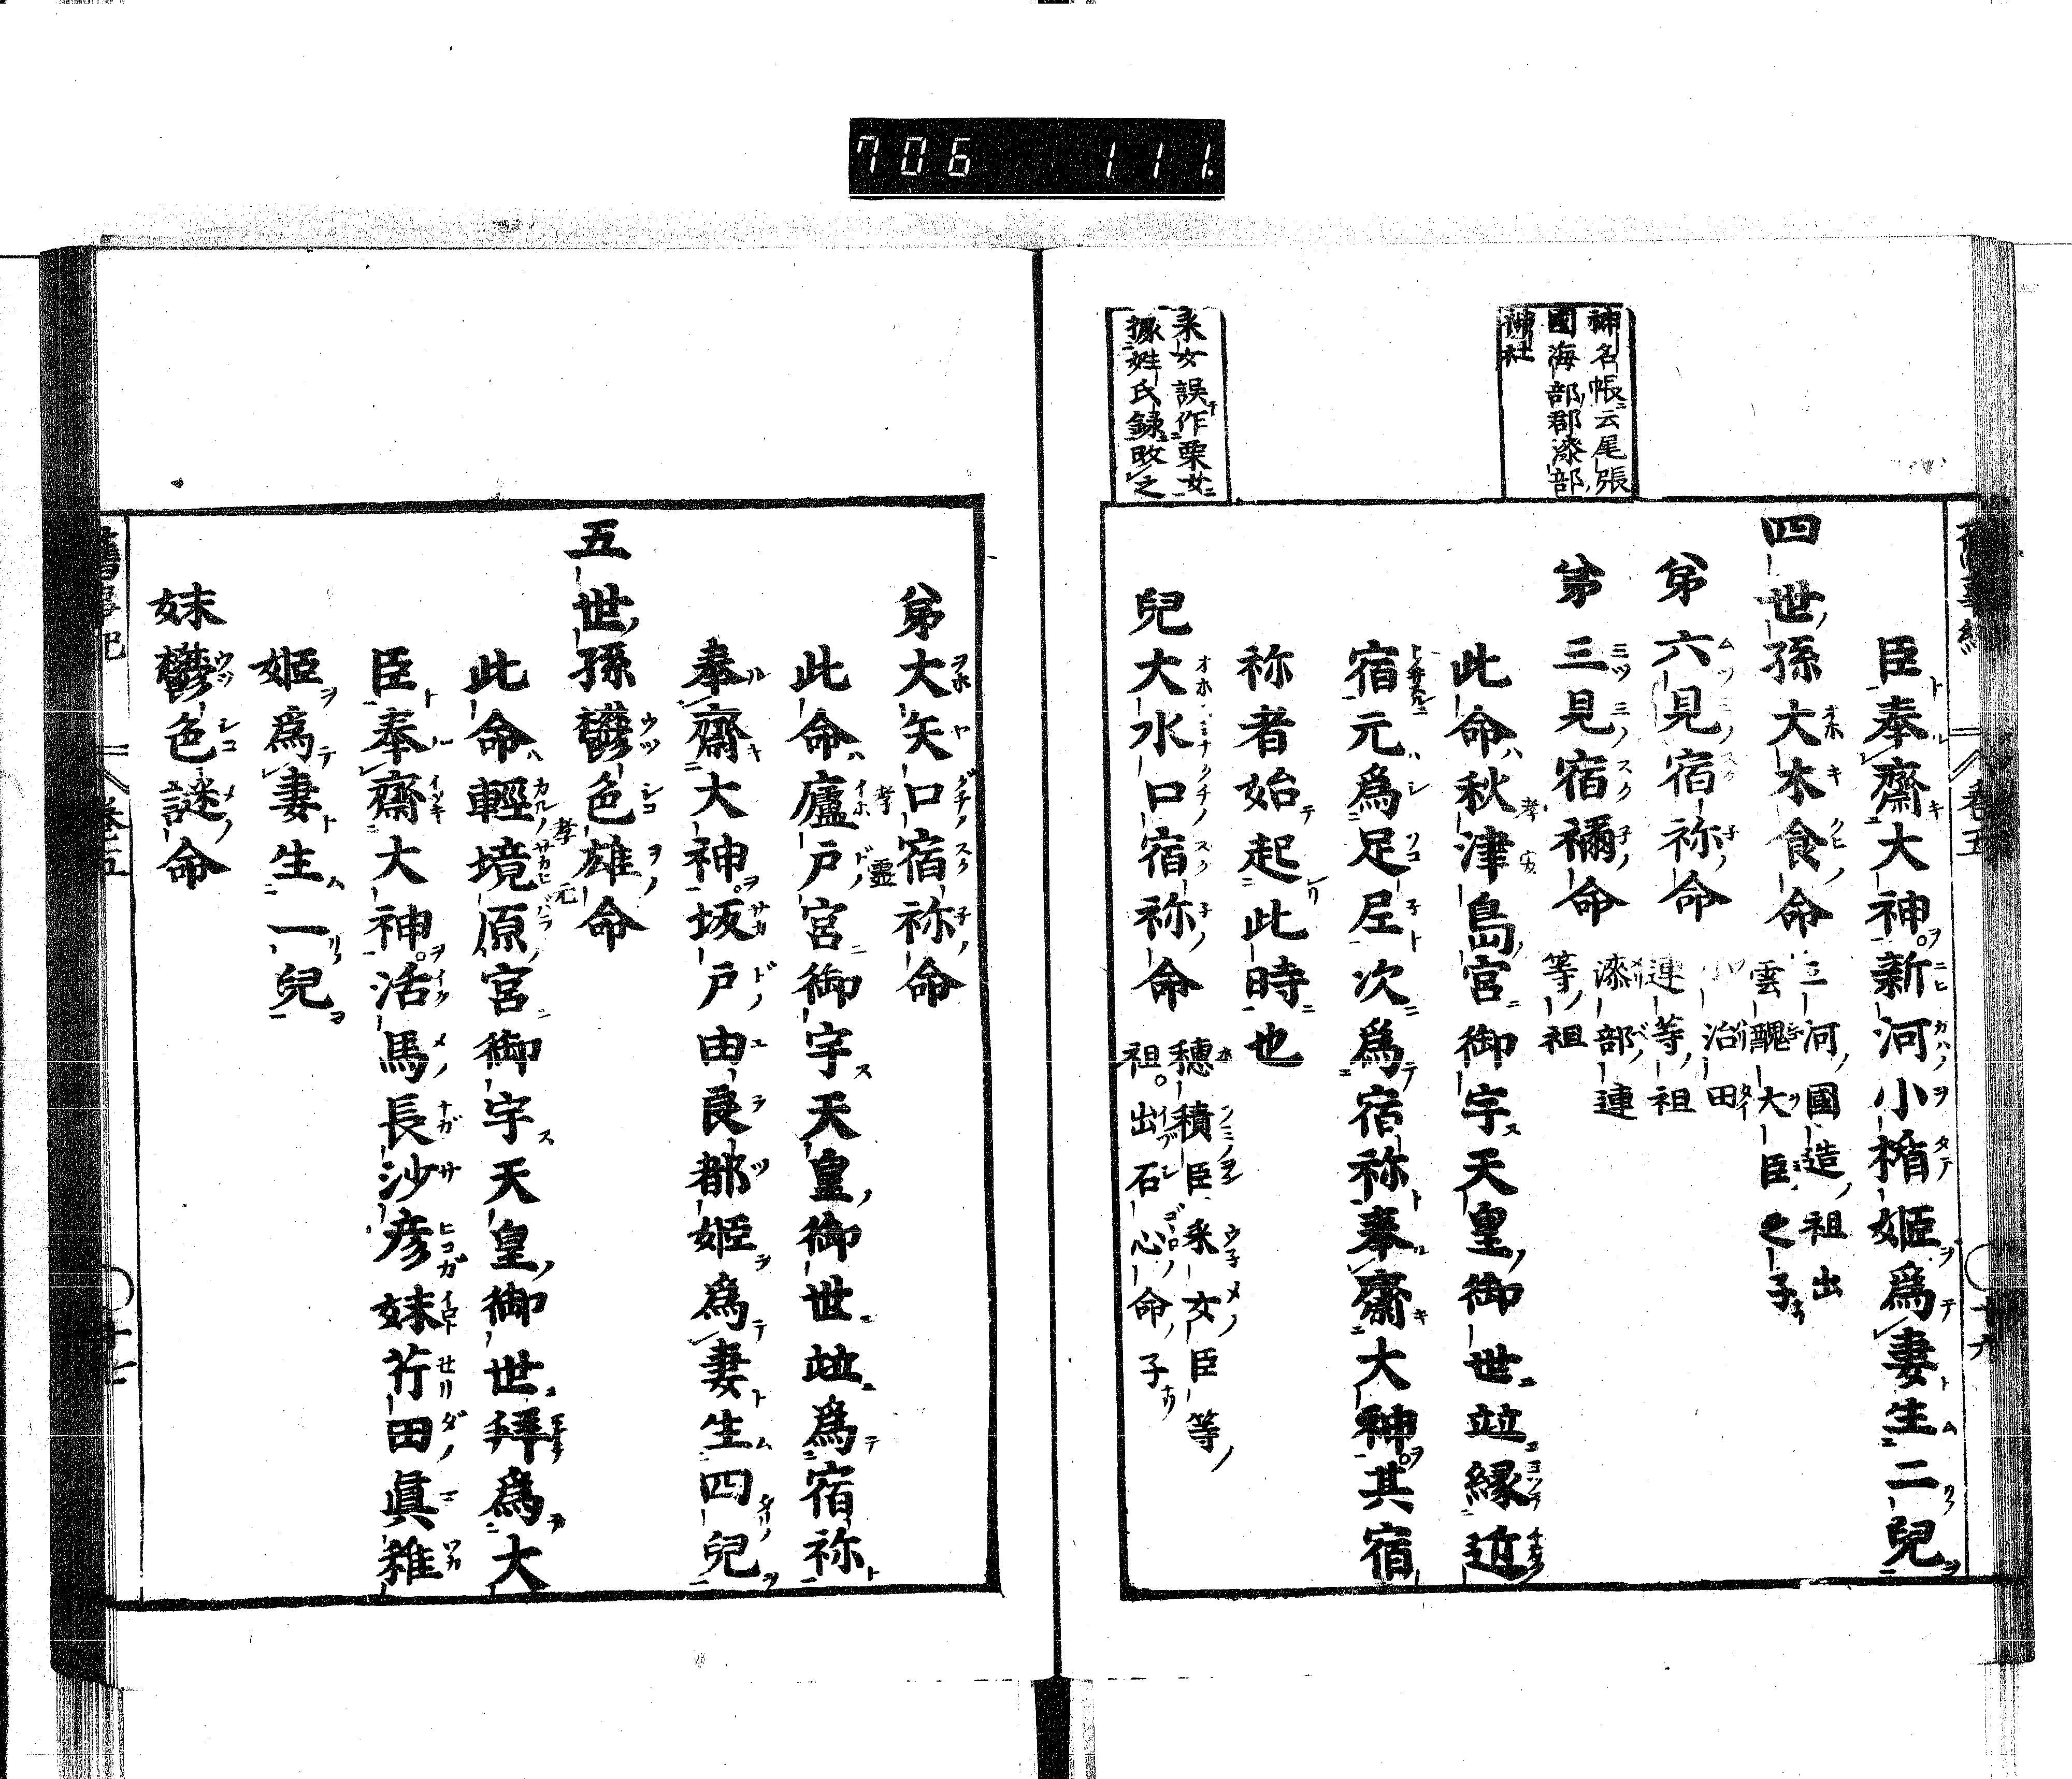 706 111.
神名帳云尾張
國海部郡漆部
神社
臣奉齋大神新河小楯姬爲妻生二兒
四世孫大木食命
三河國造祖出
雲醜大臣之子
弟六見宿祢命
小治田
連等祖
弟三見宿禰命
漆部連
等祖
此命秋津島宮御宇天皇御世竝緣近
宿元爲足尼次爲宿祢奉齋大神其宿
祢者始起此時也
采女誤作栗女
據姓氏録改之
兒大水口宿祢命
穗積臣采女臣等
祖出石心命子
弟大矢口宿祢命
此命廬戸宮御宇天皇御世竝爲宿祢
奉齋大神坂戸由良都姬爲妻生四兒
五世孫欝色雄命
此命輕境原宮御宇天皇御世拜爲大
臣奉齋大神活馬長沙彦妹芹田眞稚
姬爲妻生一兒
妹欝色謎命